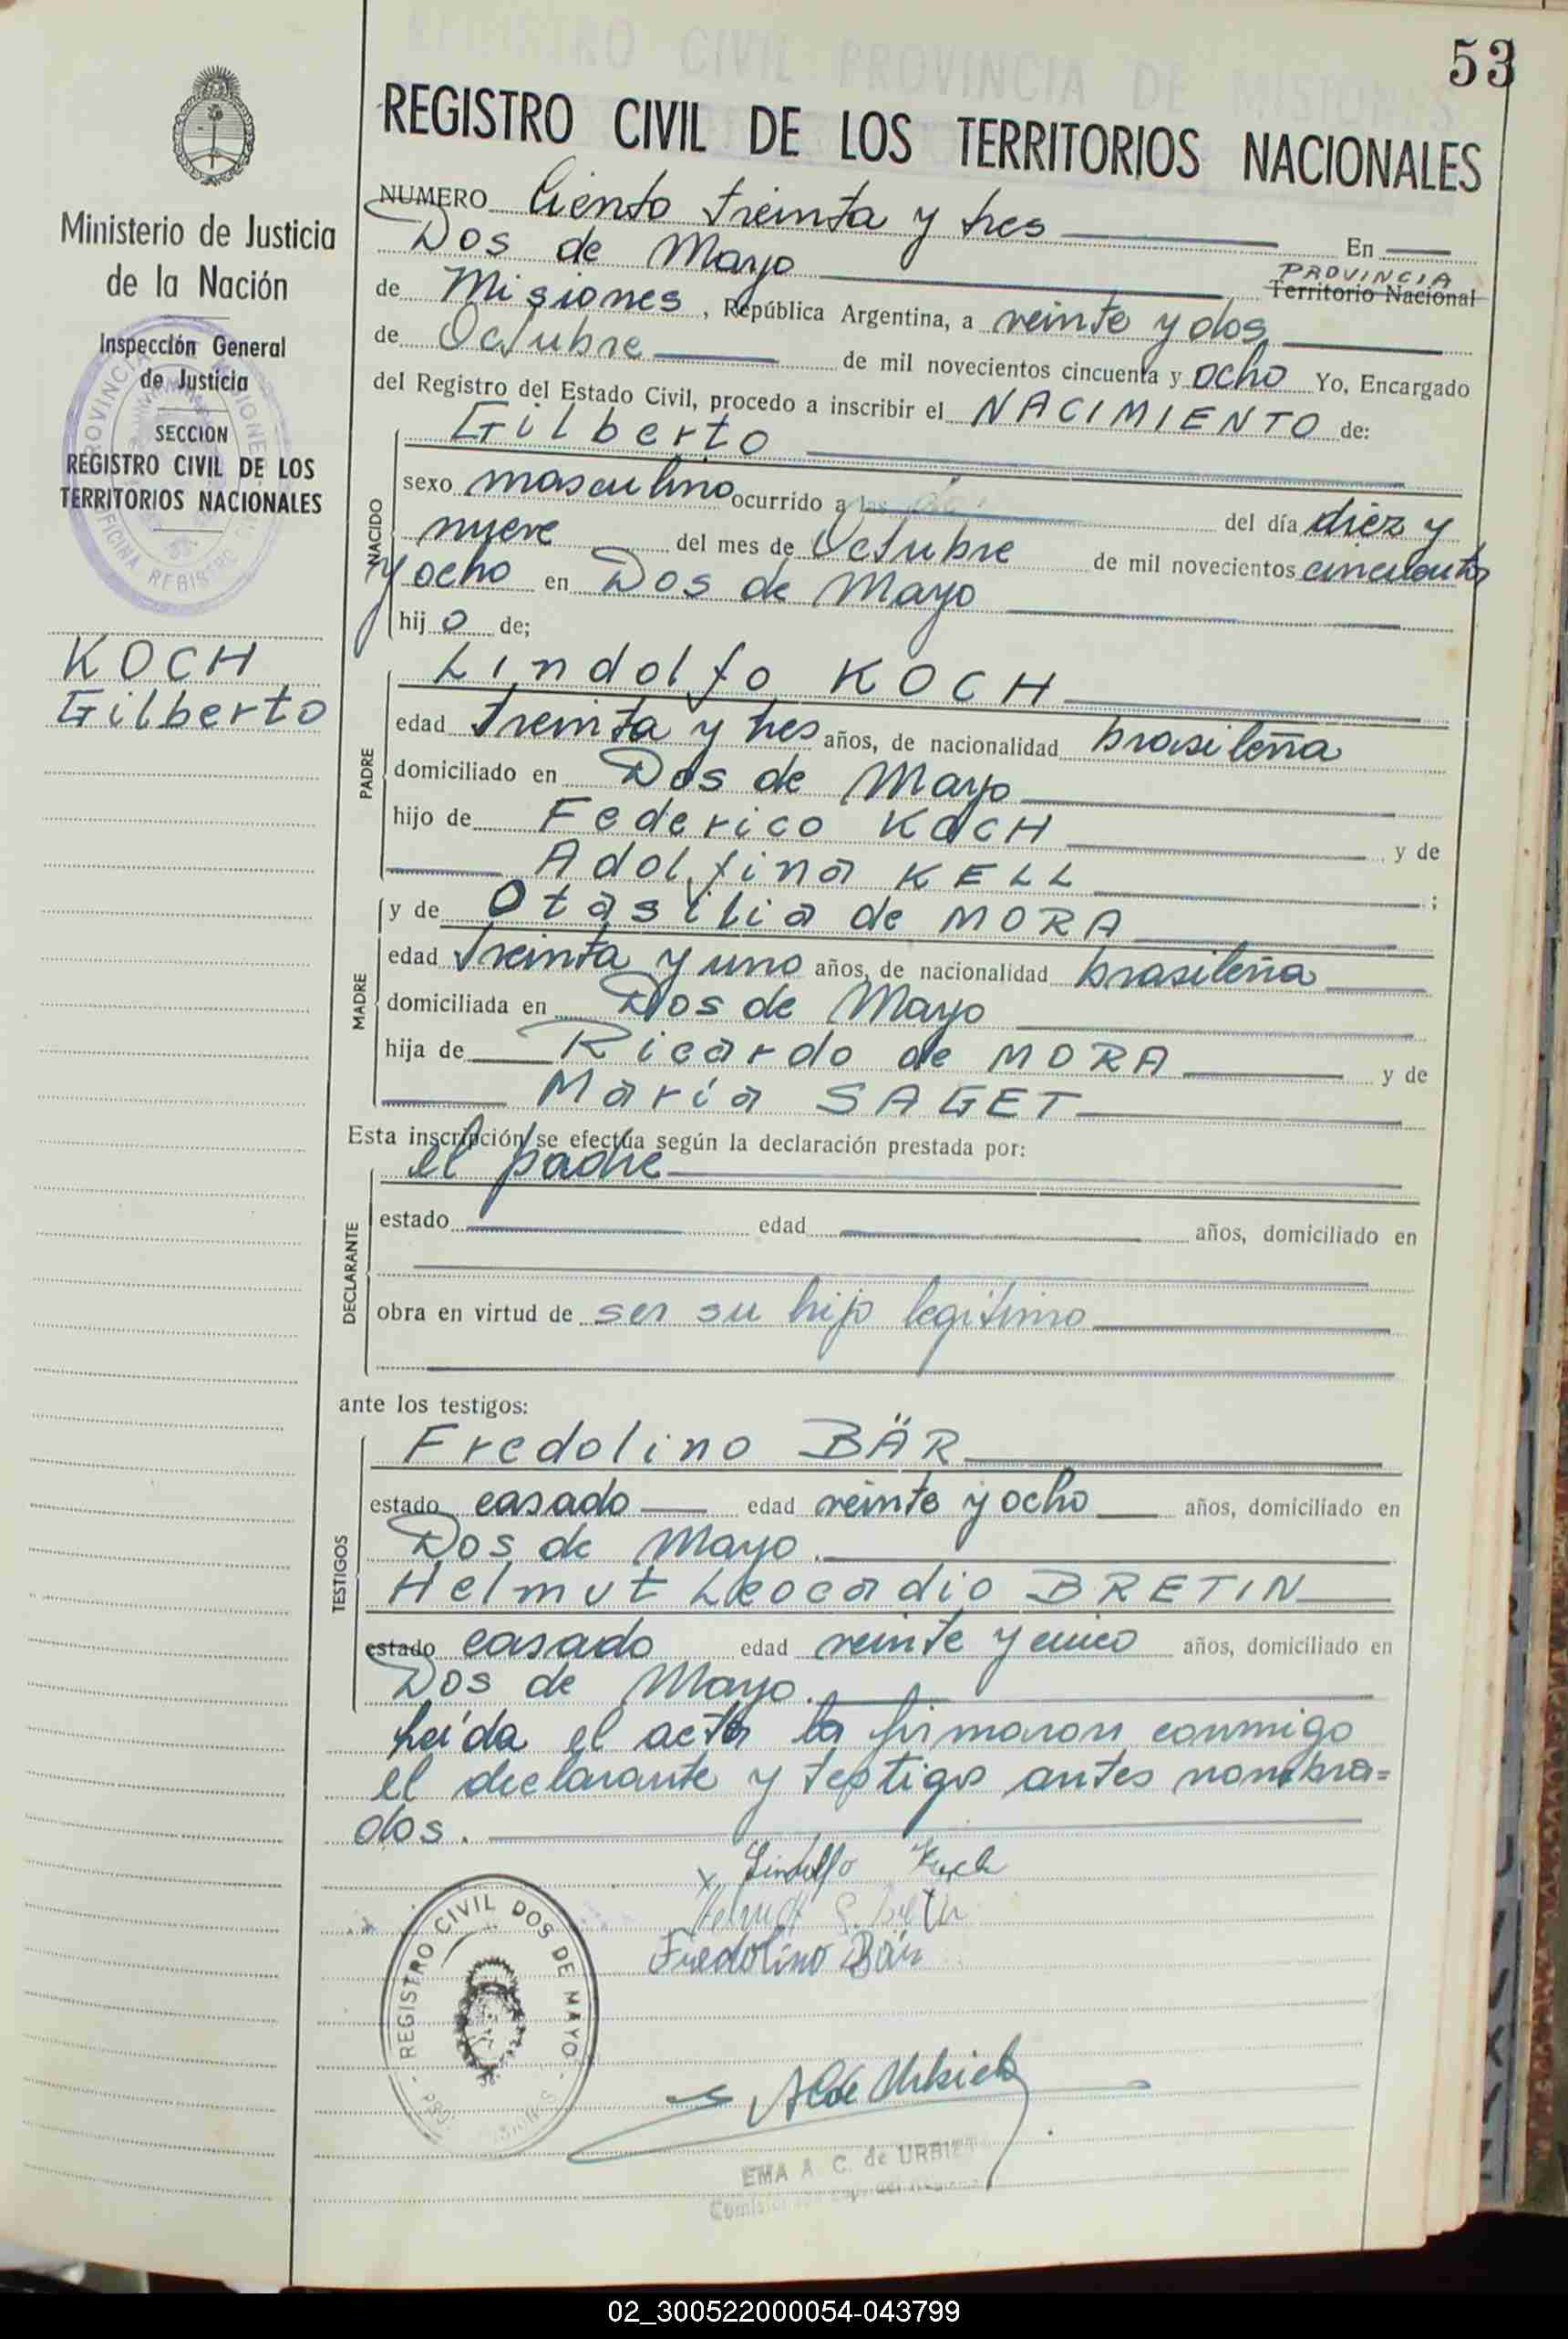 53
REGISTRO CIVIL DE LOS TERRITORIOS NACIONALES
Ministerio de Justicia
de la Nación
Inspección General
de Justicia
SECCION
REGISTRO CIVIL DE LOS
TERRITORIOS NACIONALES
KOCH
Gilberto
NUMERO Ciento treinta y tres En
Dos de Mayo PROVINCIA Territorio Nacional
de Misiones, República Argentina, a veinte y dos
de Octubre de mil novecientos cincuenta y ocho Yo, Encargado
del Registro del Estado Civil, procedo a inscribir el NACIMIENTO de:
NACIDO
Gilberto
sexo masculino ocurrido a las del día diez y
nueve del mes de Octubre de mil novecientos cincuenta
y ocho en Dos de Mayo
hijo de;
PADRE
Lindolfo KOCH
edad treinta y tres años, de nacionalidad brasileña
domiciliado en Dos de Mayo
hijo de Federico KOCH y de
Adolfina KELL ;
MADRE
y de Otasilia de MORA
edad treinta y uno años, de nacionalidad brasileña
domiciliada en Dos de Mayo
hija de Ricardo de MORA y de
María SAGET
Esta inscripción se efectúa según la declaración prestada por:
DECLARANTE
el padre
estado edad años, domiciliado en
obra en virtud de ser su hijo legitimo
ante los testigos:
TESTIGOS
Fredolino BÄR
estado casado edad veinte y ocho años, domiciliado en
Dos de Mayo.
Helmut Leocadio BRETIN
estado casado edad veinte y cinco años, domiciliado en
Dos de Mayo.
Leída el acta la firmaron conmigo
el declarante y testigos antes nombra=
dos.
x Lindolfo Koch
Fredolino Bär
REGISTRO CIVIL DOS DE MAYO
EMA A. C. de
02_300522000054-043799